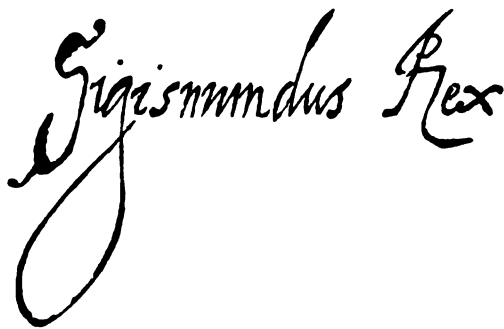 Sigismundus Rex